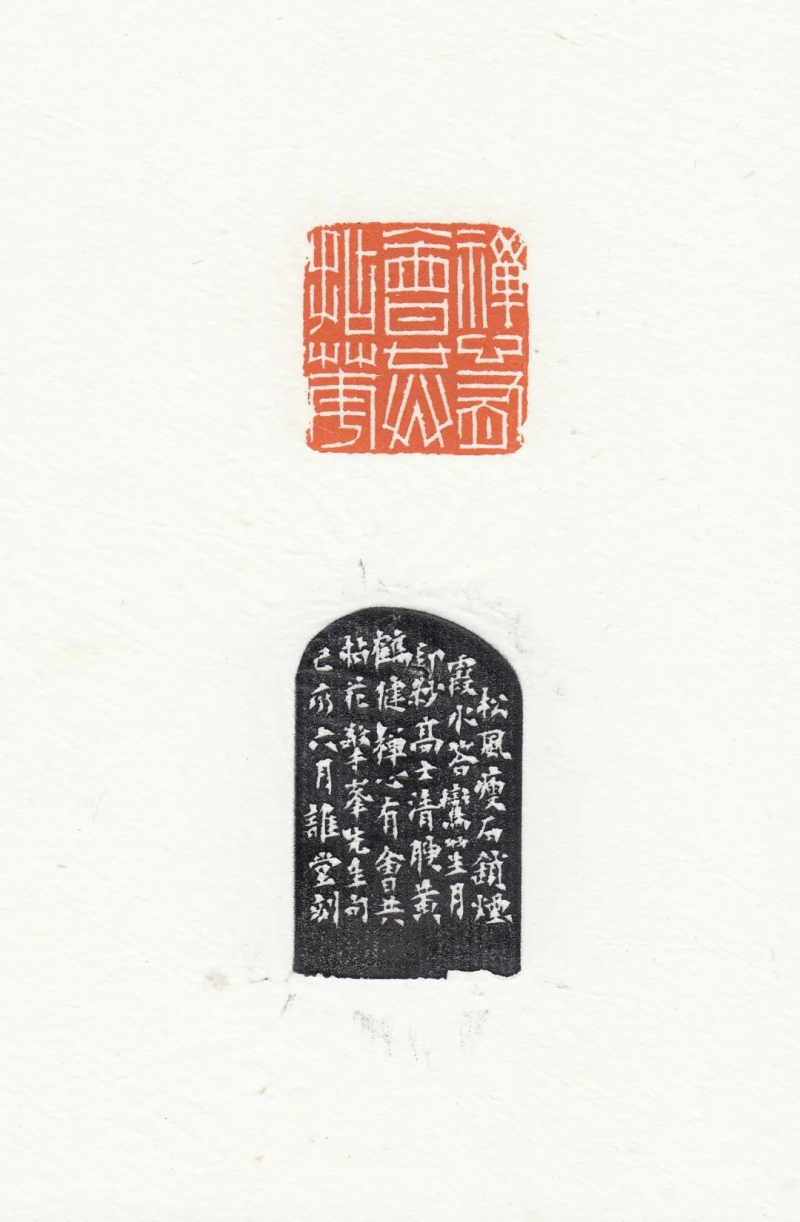 禪心有
會共
拈華
松風瘦石鎖煙
霞水答鸞笙月
印紗高士清腴黃
鶴健禪心有會共
拈花擎峯先生句
己亥六月誰堂刻